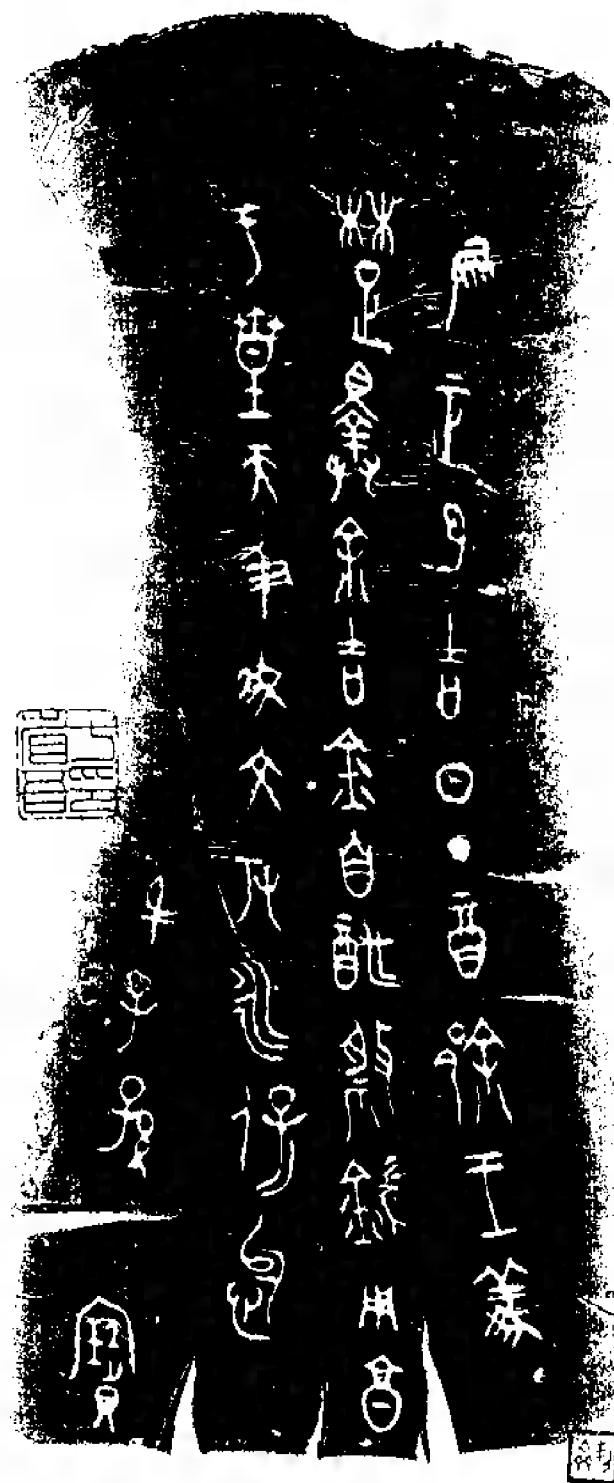 隹正月吉日丁酉郐王義
楚擇余吉金自酢祭鍴用享
于皇天及我文考永保怠
身子孫寶